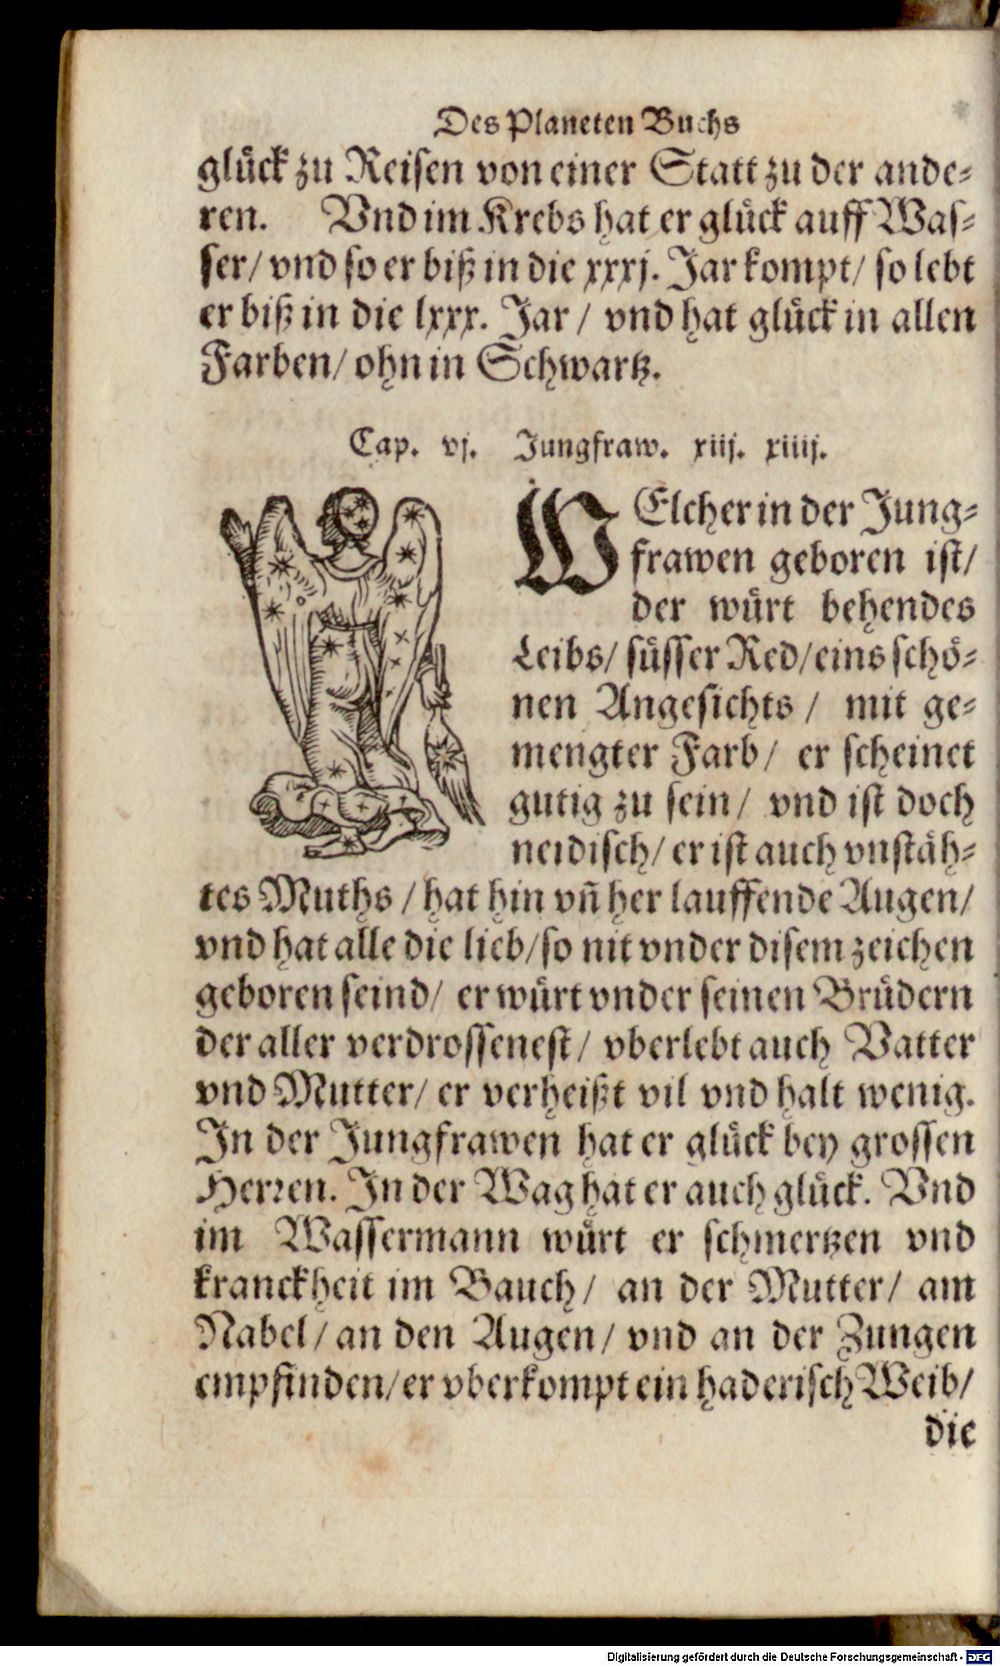 Des Planeten Buchs
glück zu Reisen von einer Statt zu der ande-
ren. Vnd im Krebs hat er glück auff Was-
ser/ vnd so er biß in die xxxj. Jar kompt/ so lebt
er biß in die lxxx. Jar / vnd hat glück in allen
Farben/ ohn in Schwartz.
Cap. vj. Jungfraw. xiij. xiiij.
WElcher in der Jung-
frawen geboren ist/
der würt behendes
Leibs/ süsser Red/ eins schö-
nen Angesichts / mit ge-
mengter Farb/ er scheinet
gutig zu sein/ vnd ist doch
neidisch/ er ist auch vnstäh-
tes Muths / hat hin vñ her lauffende Augen/
vnd hat alle die lieb/ so nit vnder disem zeichen
geboren seind/ er würt vnder seinen Brüdern
der aller verdrossenest/ vberlebt auch Vatter
vnd Mutter/ er verheißt vil vnd halt wenig.
In der Jungfrawen hat er glück bey grossen
Herren. In der Wag hat er auch glück. Vnd
im Wassermann würt er schmertzen vnd
kranckheit im Bauch/ an der Mutter/ am
Nabel/ an den Augen/ vnd an der Zungen
empfinden/ er vberkompt ein haderisch Weib/
die
Digitalisierung gefördert durch die Deutsche Forschungsgemeinschaft - DFG